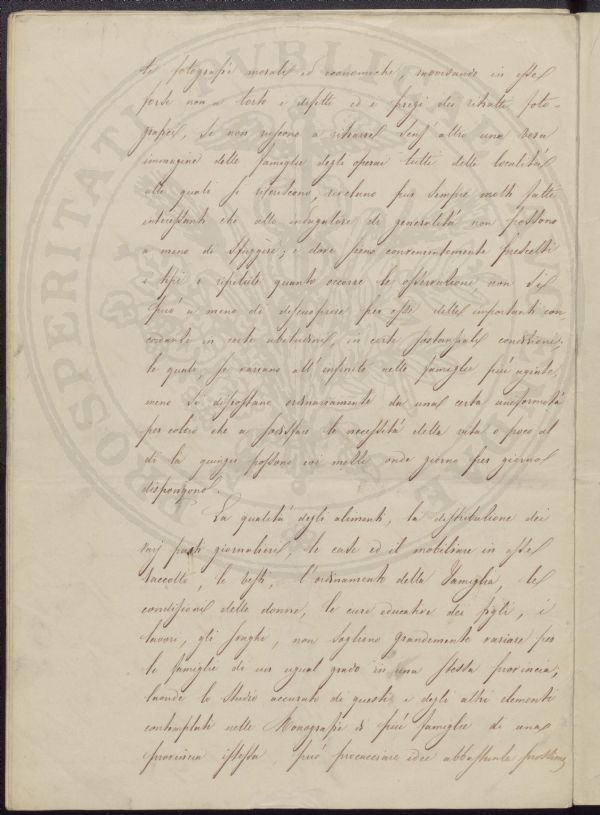 te fotografie morali ed economiche, ravvisando in esse
forse non a torto i difetti ed i pregi dei ritratti foto-
grafici, se non riescono a ritrarre senz'altro una vera
immagine delle famiglie degli operai tutti delle località
alle quali si riferiscono, rivelano pur sempre molti fatti
interessanti che alle indagini di generalità non possono
a meno di sfuggire; e dove sieno convenientemente prescelti
i tipi e ripetute quanto occorre le osservazioni non si
può a meno di discuoprire per esse delle importanti con-
cordanze in certe abitudini, in certe sostanziali condizioni,
le quali, se variano all'infinito nelle famiglie più agiate,
meno si discostano ordinariamente da una certa uniformità
per coloro che a soddisfare le necessità della vita o poco al
di là giunger possono coi mezzi onde giorno per giorno
dispongono.
La qualità degli alimenti, la distribuzione dei
varj pasti giornalieri, le case ed il mobiliare in esse
raccolto, le vesti, l'ordinamento della famiglia, le
condizioni delle donne, le cure educative dei figli, i
lavori, gli svaghi, non sogliono grandemente variare per
le famiglie di un ugual grado in una stessa provincia;
laonde lo studio accurato di questi e degli altri elementi
contemplati nelle Monografie di più famiglie di una
provincia istessa può procacciare idee abbastanza prossime
PROSPERITATI PUBLICAE